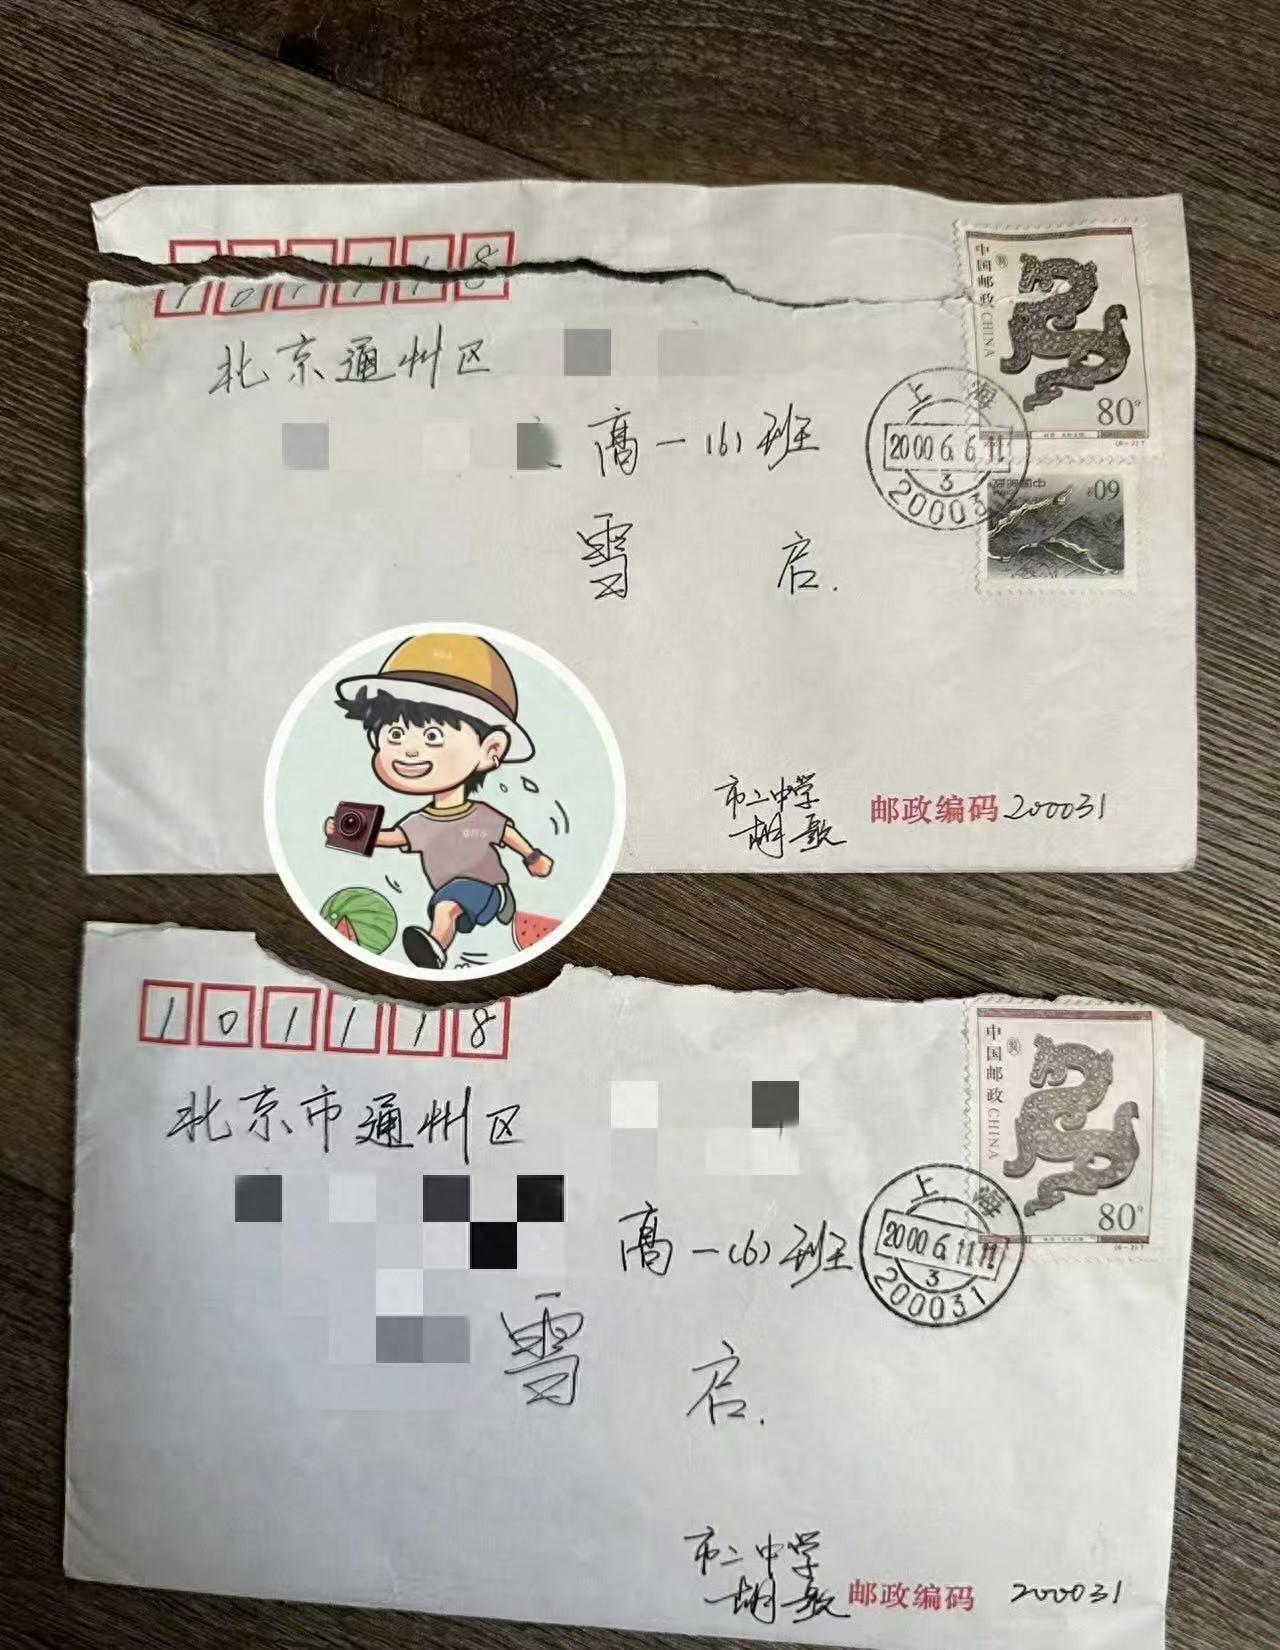 101118
北京通州区
高一(6)班
雪 启.
中国邮政 CHINA
80分
上海
2000.6.6.11
3
20003
中国邮政
60分
市二中学
胡歌
邮政编码 200031
101118
北京市通州区
高一(6)班
雪 启.
中国邮政 CHINA
80分
上海
2000.6.11.11
3
200031
市二中学
胡歌
邮政编码 200031